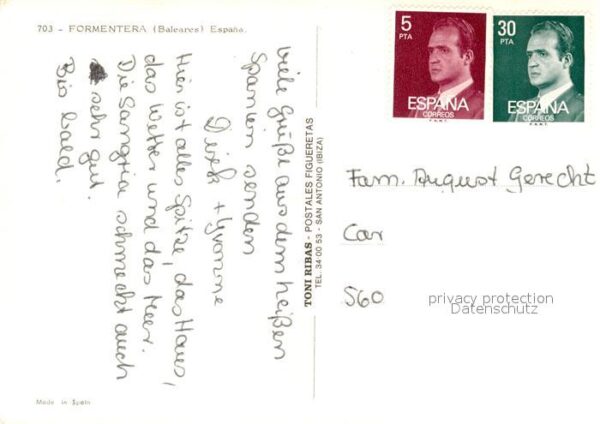 703 - FORMENTERA (Baleares) España.
viele Grüße aus dem heißen
Spanien senden
Dirk + Yvonne
Hier ist alles Spitze, das Haus,
das Wetter und das Meer.
Die Sangria schmeckt auch
sehr gut.
Bis bald.
TONI RIBAS - POSTALES FIGUERETAS
TEL. 34 00 53 - SAN ANTONIO (IBIZA)
5
PTA
ESPAÑA
CORREOS
F.N.M.T.
30
PTA
ESPAÑA
CORREOS
F.N.M.T.
Fam. August Gerecht
Car
560
privacy protection
Datenschutz
Made in Spain